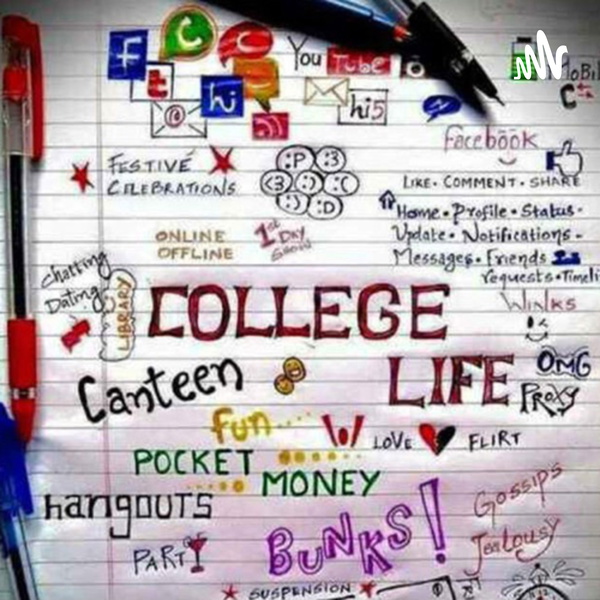 f
t
hi
You Tube
hi5
MOBIL
C
facebook
FESTIVE
CELEBRATIONS
:P :3
<3 :) :(
:) :D
LIKE • COMMENT • SHARE
Home • Profile • Status •
Update • Notifications •
Messages • Friends
requests • Timeli
ONLINE
OFFLINE
1st
DAY
SHOW
chatting
Dating
LIBRARY
COLLEGE
WINKS
LIFE
OMG
PROXY
Canteen
fun....
LOVE
FLIRT
POCKET
MONEY
hangouts
PARTY
BUNKS!
Gossips
Jealousy
SUSPENSION